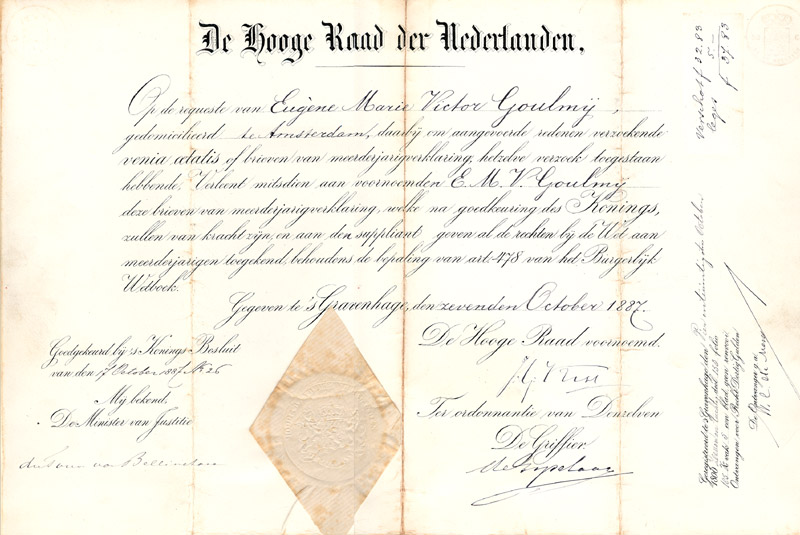 De Hooge Raad der Nederlanden.
Op de requeste van Eugène Marie Victor Goulmij,
gedomicilieerd te Amsterdam, daarbij om aangevoerde redenen verzoekende
venia ætatis of brieven van meerderjarigverklaring, hetzelve verzoek toegestaan
hebbende, Verleent mitsdien aan voornoemden E. M. V. Goulmij
deze brieven van meerderjarigverklaring, welke na goedkeuring des Konings,
zullen van kracht zijn, en aan den suppliant geven al de rechten bij de Wet aan
meerderjarigen toegekend, behoudens de bepaling van art: 478 van het Burgerlijk
Wetboek.
Gegeven te 's Gravenhage, den zevenden October 1887.
Goedgekeurd bij 's Konings Besluit
van den 17 October 1887 No 26
Mij bekend,
De Minister van Justitie
De Hooge Raad voornoemd.
Ter ordonnantie van Denzelven
De Griffier
Voorschot f 32.83
Leges 5.–
f 37.83
Geregistreerd te 's Gravenhage den October
Ontvangen voor Recht Dertig Gulden
De Ontvanger g.a.